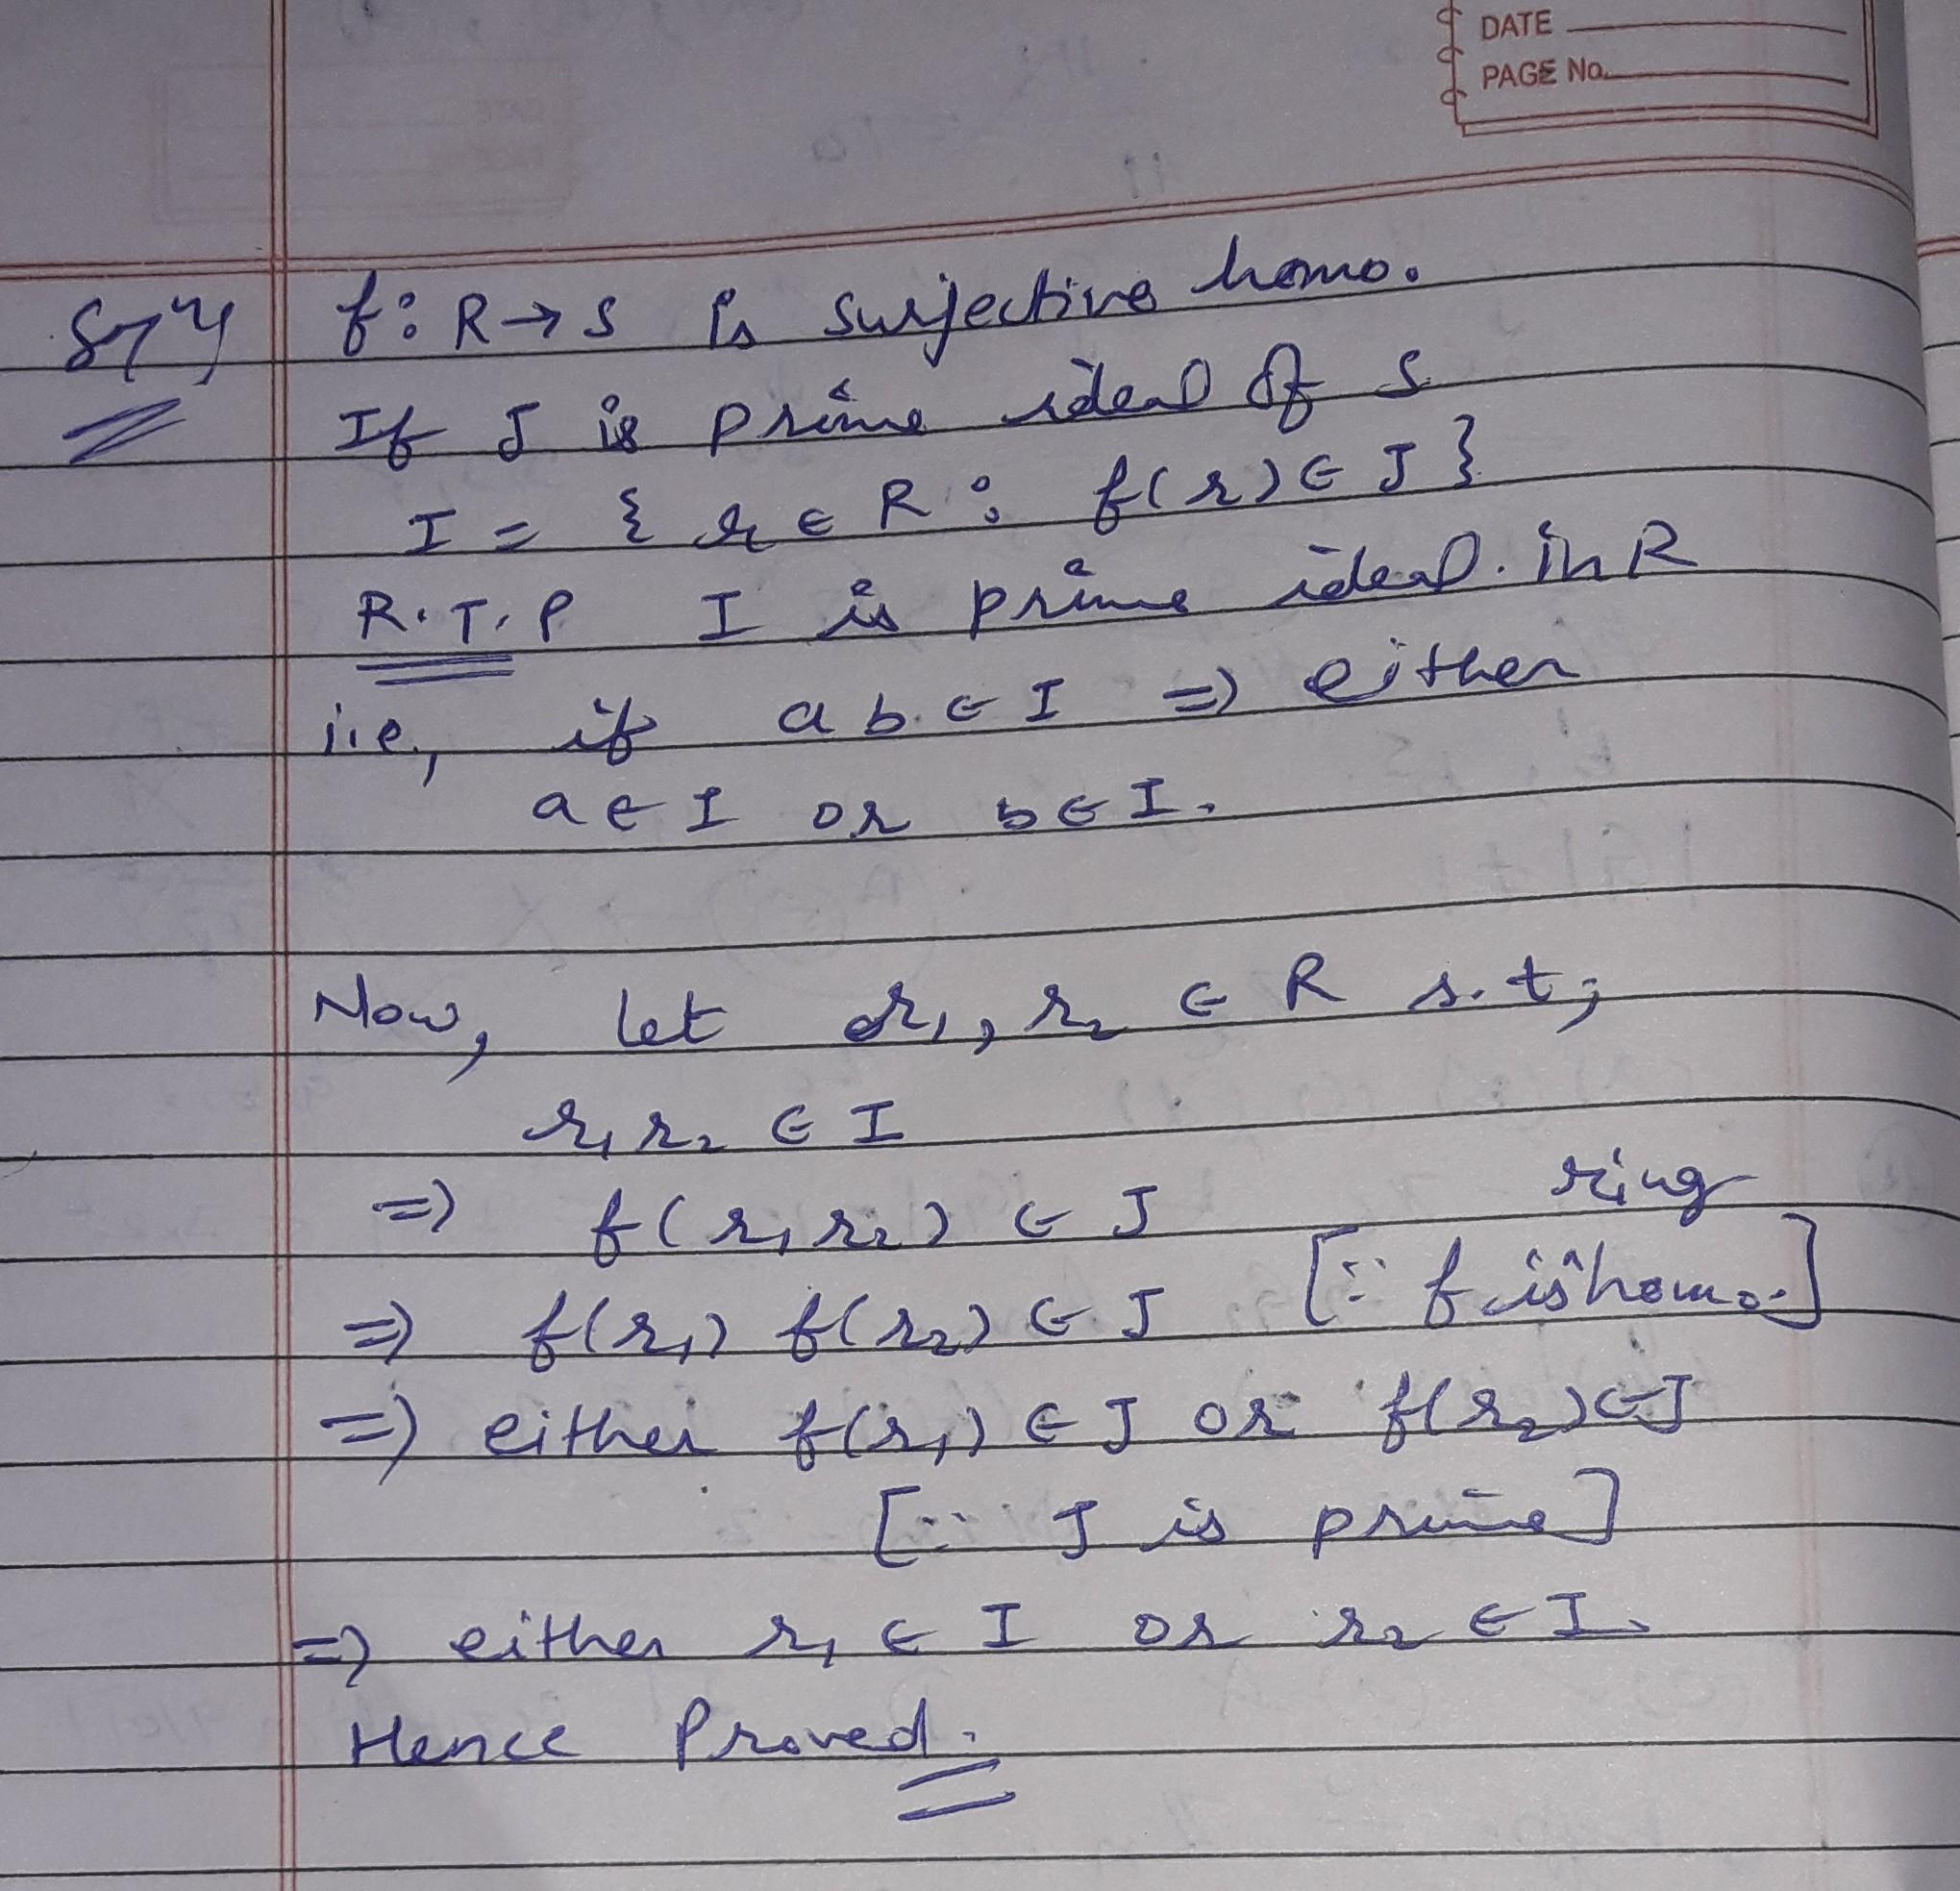 DATE
PAGE No.
f: R → S is surjective homo.
If J is prime ideal of S
I = { r ∈ R : f(r) ∈ J }
R.T.P I is prime ideal. in R
i.e., if ab ∈ I => either
a ∈ I or b ∈ I.
Now, let r₁, r₂ ∈ R s.t;
r₁r₂ ∈ I
=> f(r₁r₂) ∈ J
=> f(r₁) f(r₂) ∈ J [∵ f is ring homo.]
=> either f(r₁) ∈ J or f(r₂) ∈ J
[∵ J is prime]
=> either r₁ ∈ I or r₂ ∈ I.
Hence Proved.